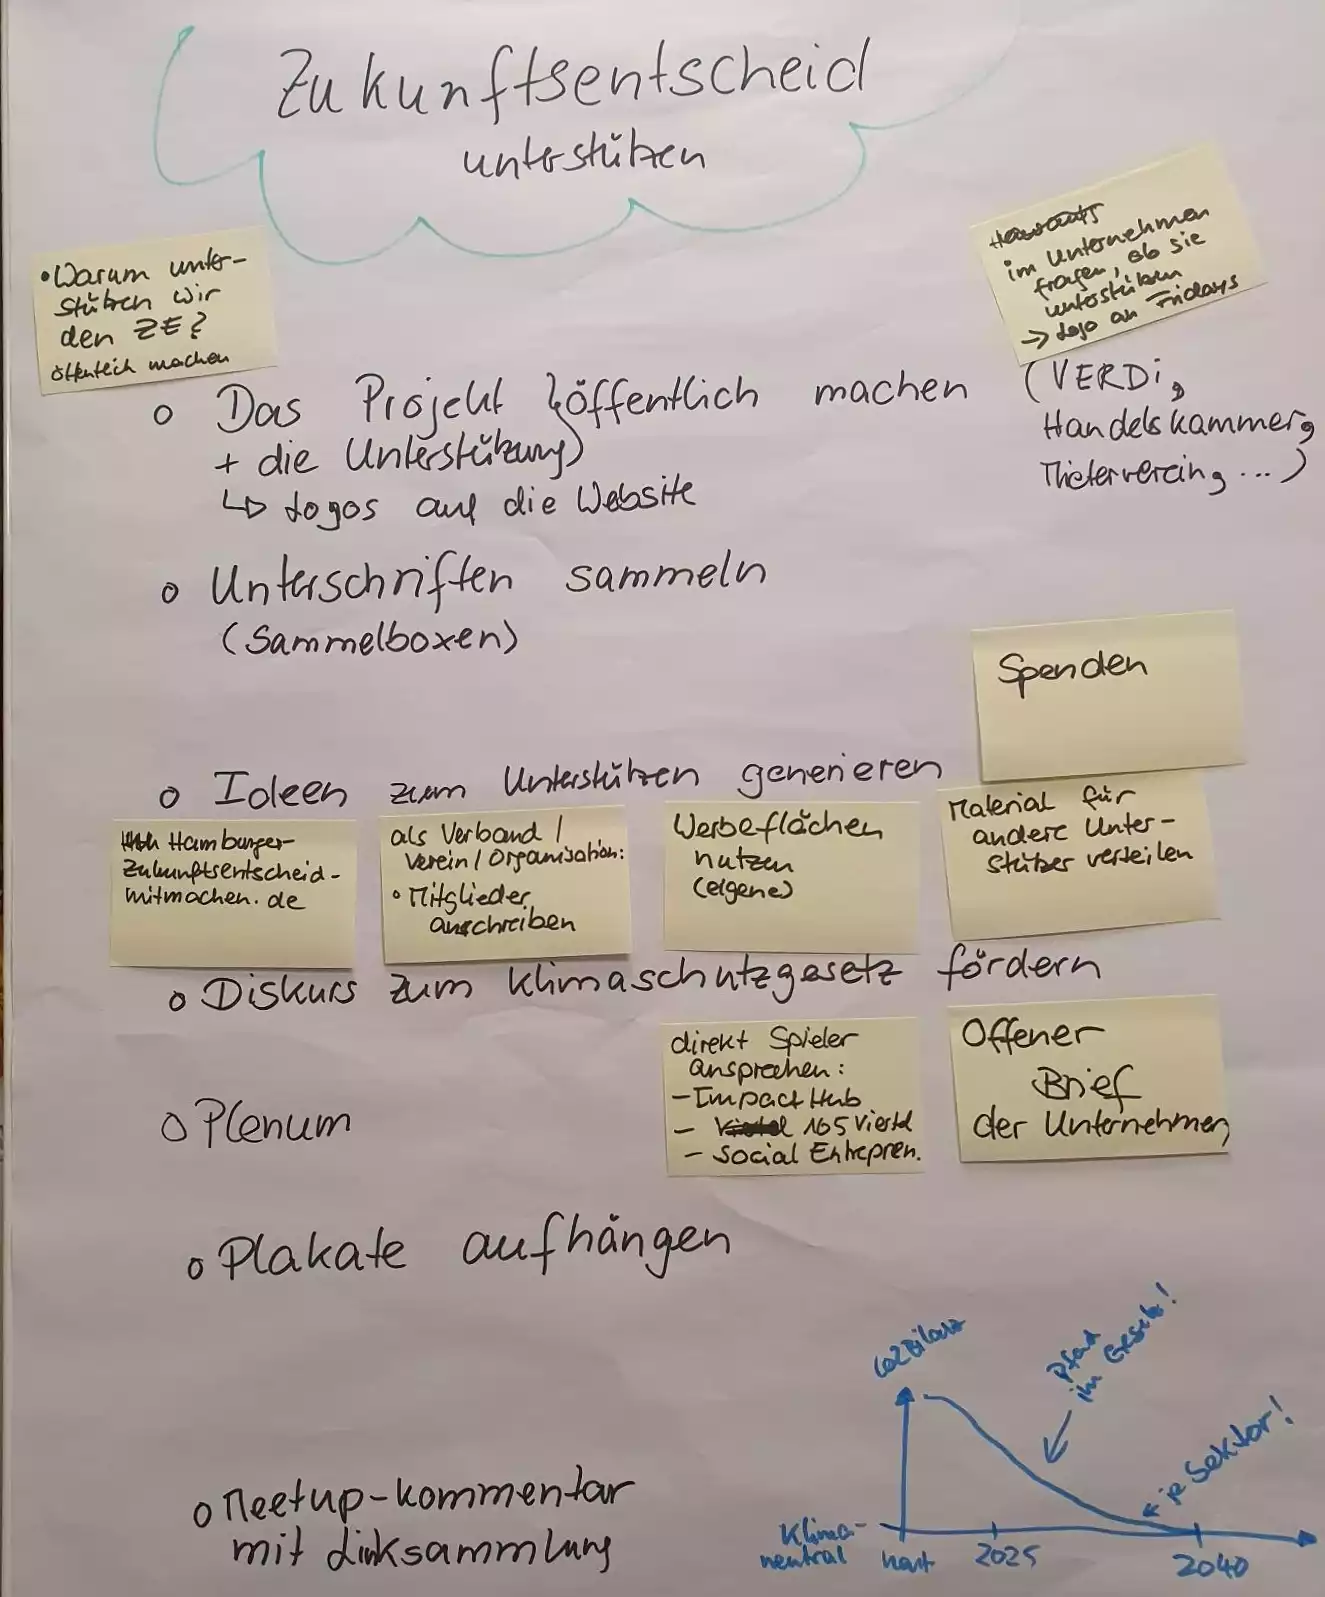 Zukunftsentscheid
unterstützen
• Warum unter-
stützen wir
den ZE?
öffentlich machen
im Unternehmen
fragen, ob sie
unterstützen
→ Logo an Fridays
o Das Projekt öffentlich machen (VERDi,
+ die Unterstützung
Handelskammer,
Mieterverein, ...)
↳ Logos auf die Website
o Unterschriften sammeln
(Sammelboxen)
Spenden
o Ideen zum Unterstützen generieren
Hamburger-
Zukunftsentscheid-
mitmachen.de
als Verband /
Verein / Organisation:
• Mitglieder
anschreiben
Werbeflächen
nutzen
(eigene)
Material für
andere Unter-
stützer verteilen
o Diskurs zum Klimaschutzgesetz fördern
direkt Spieler
ansprechen:
- Impact Hub
- Viertel 105 Viertel
- Social Entrepren.
Offener
Brief
der Unternehmen
o Plenum
o Plakate aufhängen
CO2 Bilanz
Pfad
im Gesetz!
je Sektor!
Klima-
neutral
2025
2040
o Meetup-kommentar
mit Linksammlung